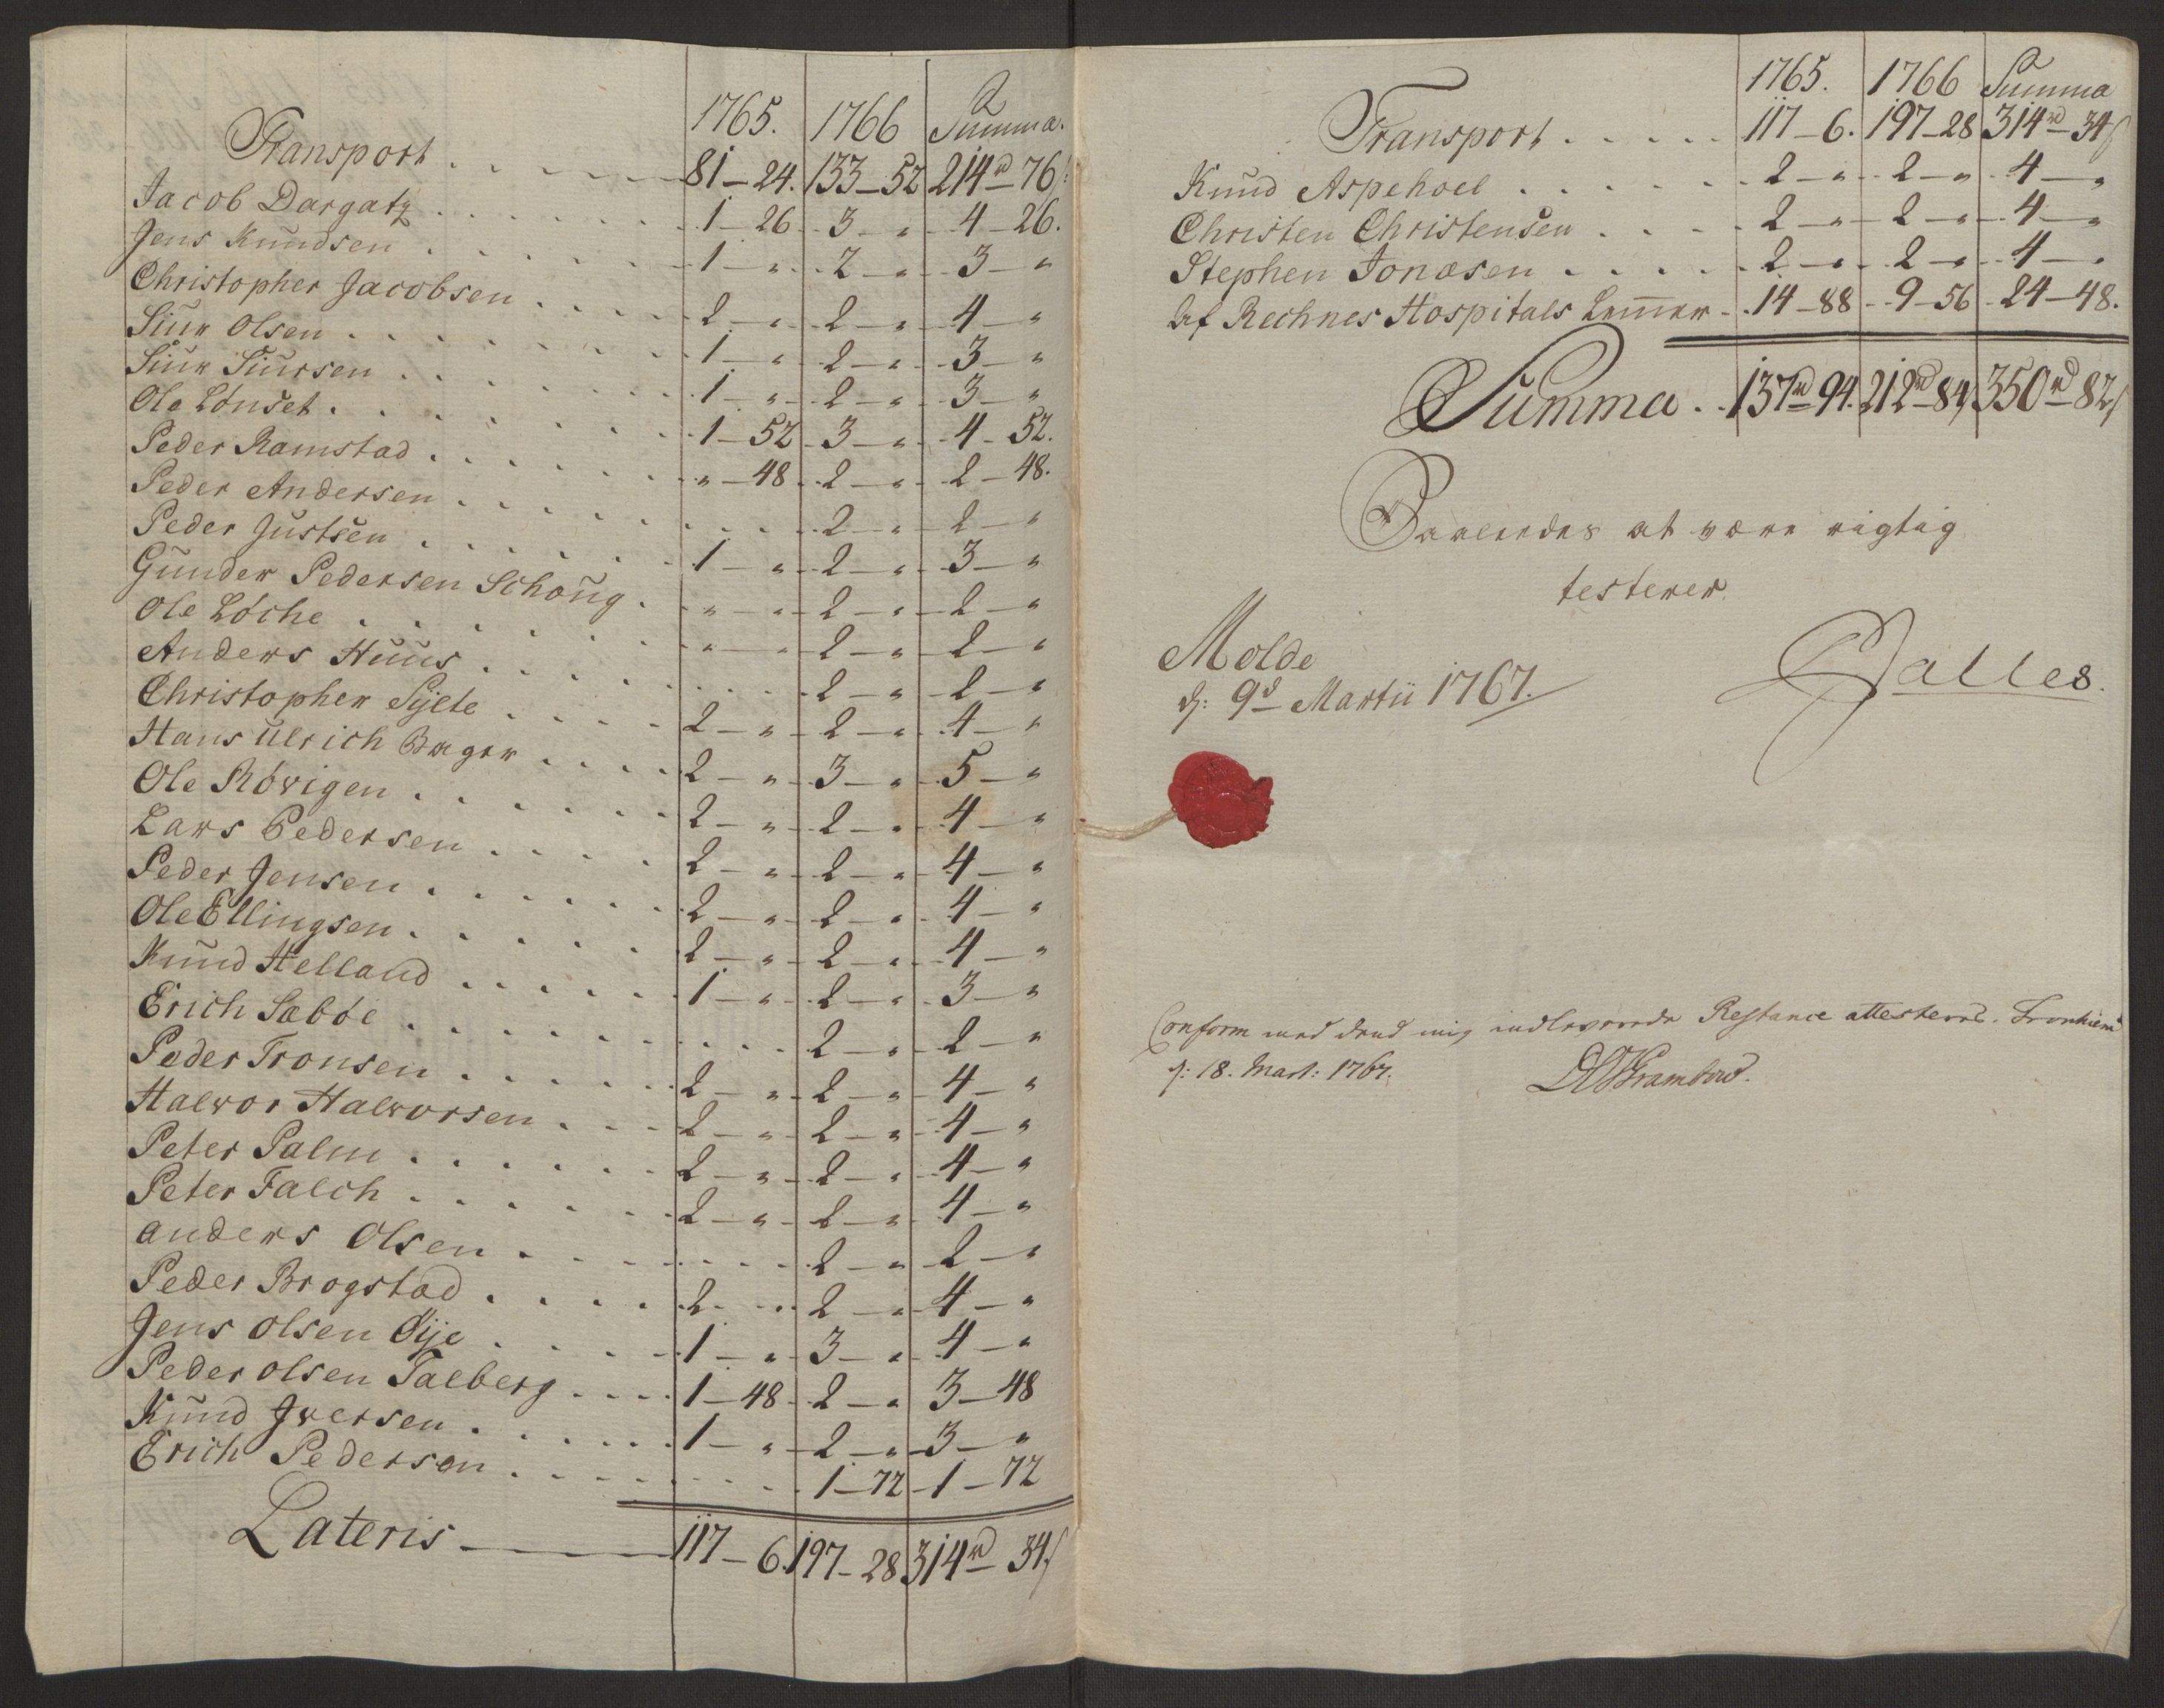 1765. 1766 Summa.
Transport . . . . . 81 — 24. 133 — 52 214rd — 76ß:
Jacob Dargatz . . . . . . 1 — 26. 3 — „ 4 — 26.
Jens Knudsen . . . . . . 1 — „ 2 — „ 3 — „
Christopher Jacobsen . . . . 2 — „ 2 — „ 4 — „
Siur Olsen . . . . . . . 1 — „ 2 — „ 3 — „
Siur Siursen . . . . . . 1 — „ 2 — „ 3 — „
Ole Lønset . . . . . . . 1 — 52 3 — „ 4 — 52.
Peder Ramstad . . . . . . „ — 48 2 — „ 2 — 48.
Peder Andersen . . . . . . . . . 2 — „ 2 — „
Peder Justsen . . . . . . 1 — „ 2 — „ 3 — „
Gunder Pedersen Schoug . „ — „ 2 — „ 2 — „
Ole Løche . . . . . . . „ — „ 2 — „ 2 — „
Anders Huus . . . . . . . . . 2 — „ 2 — „
Christopher Sylte . . . . 2 — „ 2 — „ 4 — „
Hans Ulrich Bager . . . . 2 — „ 3 — „ 5 — „
Ole Røvigen . . . . . . 2 — „ 2 — „ 4 — „
Lars Pedersen . . . . 2 — „ 2 — „ 4 — „
Peder Jensen . . . . . . 2 — „ 2 — „ 4 — „
Ole Ellingsen . . . . . . 2 — „ 2 — „ 4 — „
Knud Helland . . . . . 1 — „ 2 — „ 3 — „
Erich Sæbøe . . . . . . . . . 2 — „ 2 — „
Peder Tronsen . . . . . . 2 — „ 2 — „ 4 — „
Halvor Halvorsen . . . 2 — „ 2 — „ 4 — „
Peter Palm . . . . . . 2 — „ 2 — „ 4 — „
Peter Falch . . . . . . 2 — „ 2 — „ 4 — „
Anders Olsen . . . . . . . . 2 — „ 2 — „
Peder Brogstad . . . . 2 . . . 2 — „ 4 — „
Jens Olsen Øije . . . . 1 — „ 3 — „ 4 — „
Peder Olsen Talberg . . . . 1 — 48 2 — „ 3 — 48
Knud Iversen . . . . . . 1 — „ 2 — „ 3 — „
Erich Pedersen . . . . . . . . 1 — 72 1 — 72
Lateris — 117 — 6. 197 — 28 314rd — 34ß
1765. 1766 Summa
Transport . . . . . 117 — 6. 197 — 28 314rd — 34ß
Knud Aspehoel . . . . . . 2 — „ 2 — „ 4 — „
Christen Christensen . . . . 2 — „ 2 — „ 4 — „
Stephen Jonasen . . . . . 2 — „ 2 — „ 4 — „
Af Rechnes Hospitals Lemmer . 14 — 88 9 — 56 24 — 48.
Summa . . 137rd 94. 212rd — 84ß 350rd — 82ß
Saaledes at være rigtig
testerer.
Molde
d: 9d Martii 1767.
Galles.
Conform med dend mig indleverede Restance attesteres. Tronhiem
d: 18. Mart: 1767.
Krambow.